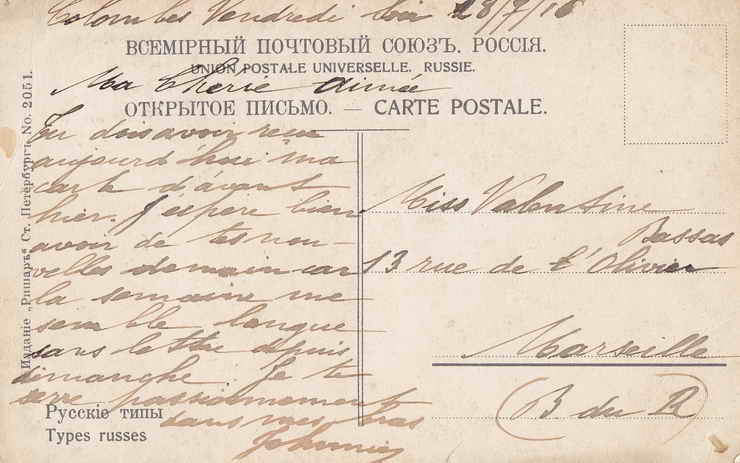 Colombes Vendredi soir 28/7/16
ВСЕМІРНЫЙ ПОЧТОВЫЙ СОЮЗЪ. РОССІЯ.
UNION POSTALE UNIVERSELLE. RUSSIE.
Ma Chérie aimée
ОТКРЫТОЕ ПИСЬМО. — CARTE POSTALE.
Tu dois avoir reçu
aujourd'hui ma
carte d'avant
hier. J'espère bien
avoir de tes nou-
velles demain car
la semaine me
semble longue
sans lettre depuis
dimanche. Je te
serre passionnément
dans mes bras
Johnny
Miss Valentine
Bassas
13 rue de l'Olivier
Marseille
(B du R)
Русскіе типы
Types russes
Изданіе „Ришаръ“ Ст. Петербургъ. No. 2051.